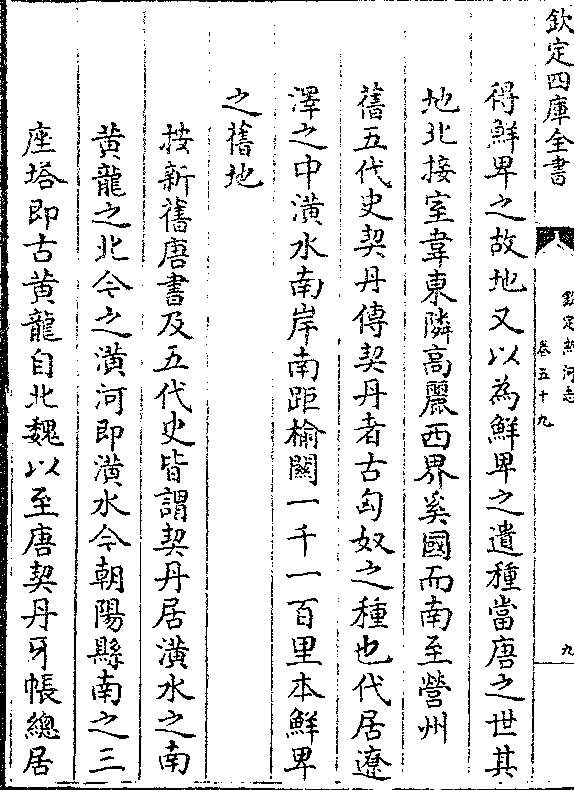 欽定四庫全書
欽定熱河志
卷五十九
九
得鮮卑之故地又以為鮮卑之遺種當唐之世其
地北接室韋東隣高麗西界奚國而南至營州
舊五代史契丹傳契丹者古匈奴之種也代居遼
澤之中潢水南岸南距榆關一千一百里本鮮卑
之舊地
按新舊唐書及五代史皆謂契丹居潢水之南
黃龍之北今之潢河即潢水今朝陽縣南之三
座塔即古黃龍自北魏以至唐契丹牙帳總居